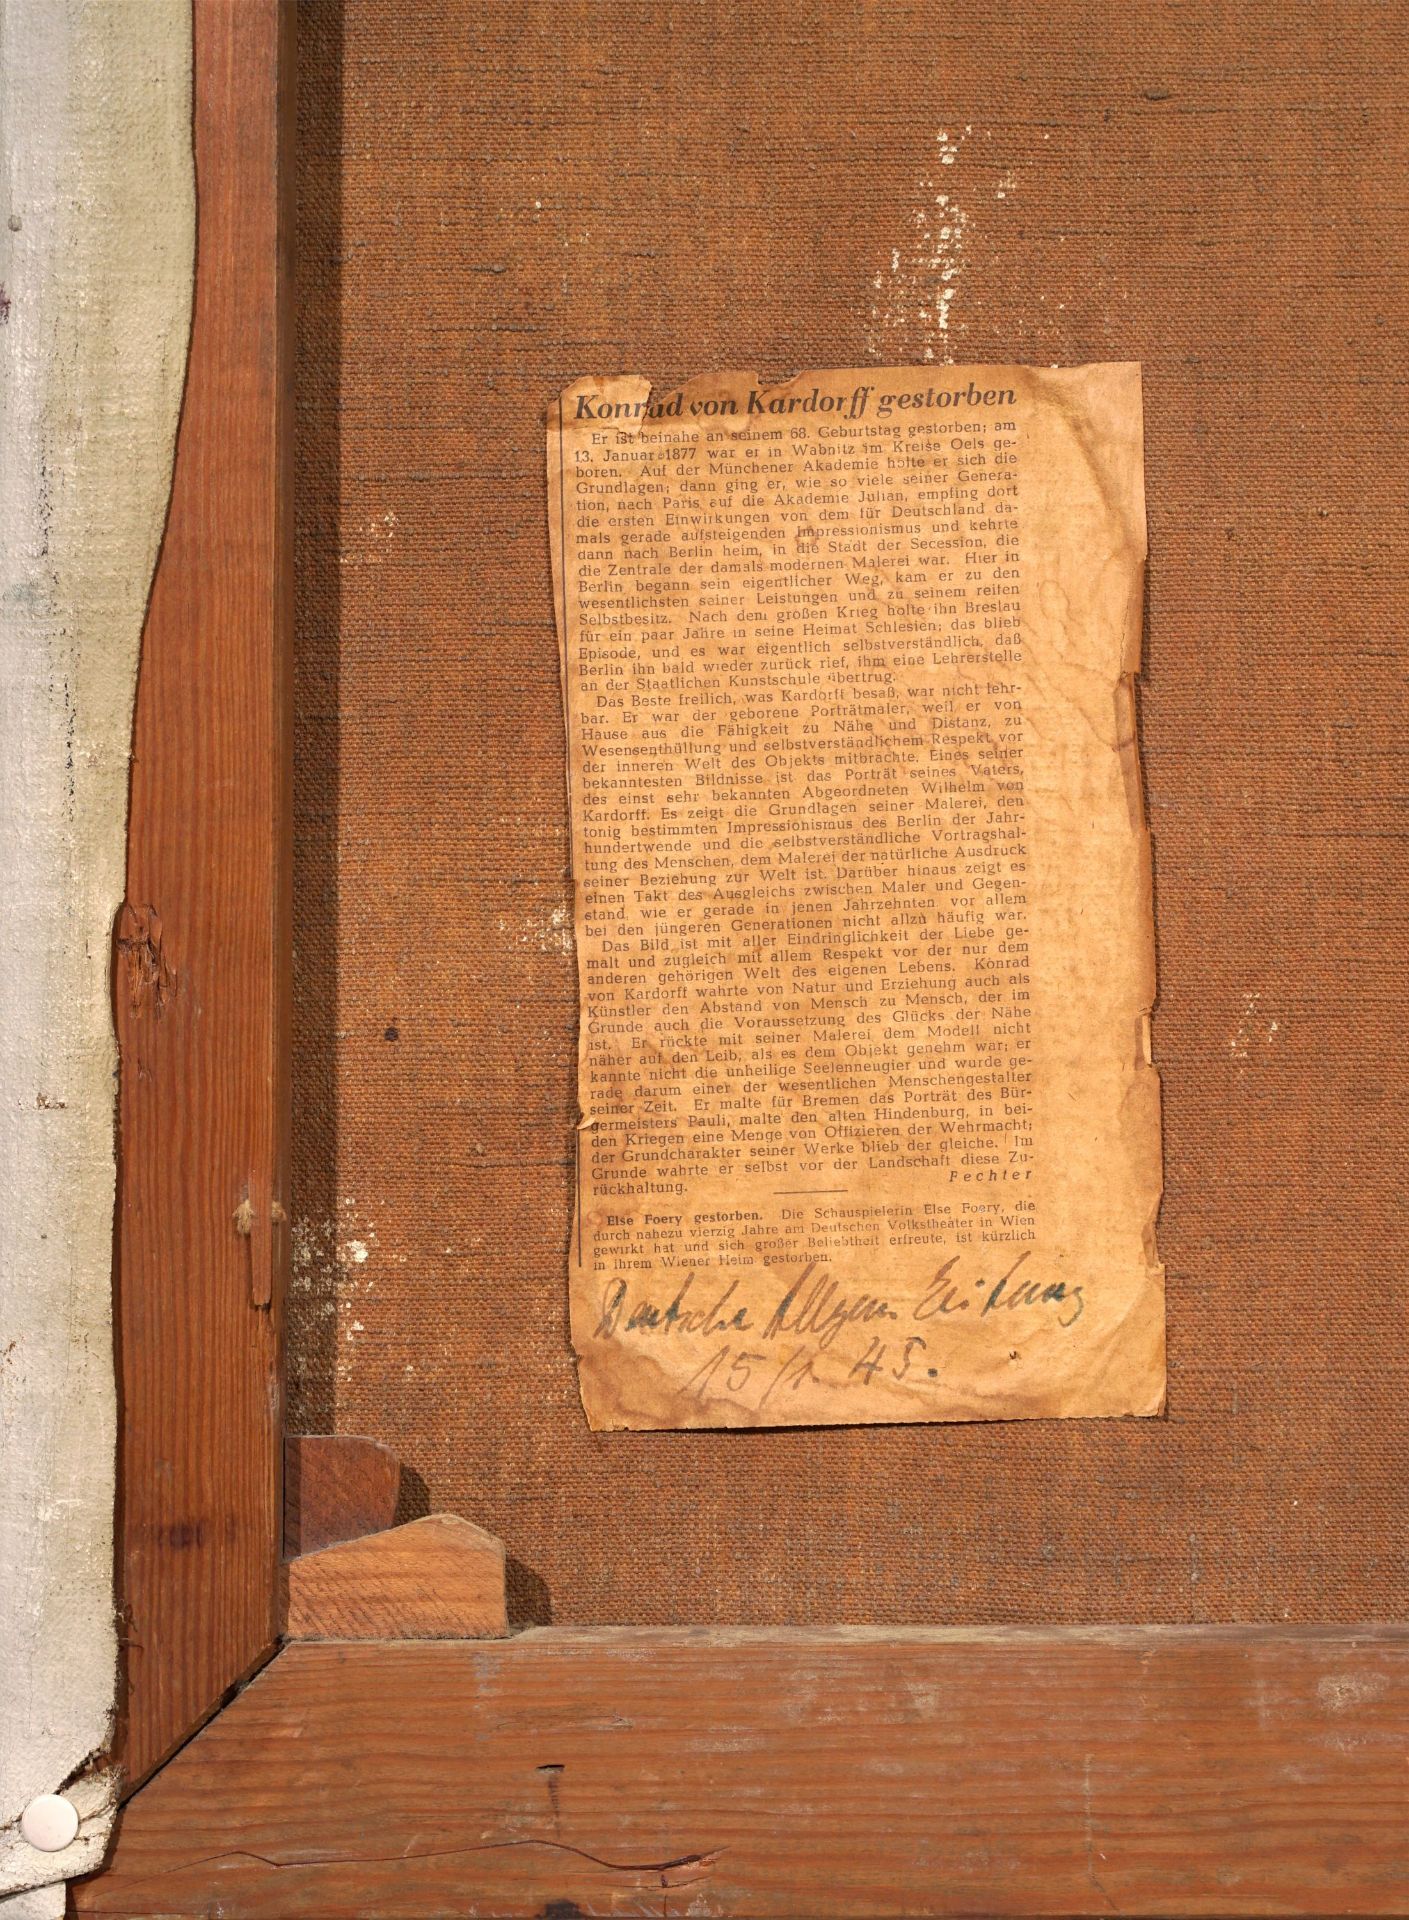 Konrad von Kardorff gestorben
Er ist beinahe an seinem 68. Geburtstag gestorben; am
13. Januar 1877 war er in Wabnitz im Kreise Oels ge-
boren. Auf der Münchener Akademie holte er sich die
Grundlagen; dann ging er, wie so viele seiner Genera-
tion, nach Paris auf die Akademie Julian, empfing dort
die ersten Einwirkungen von dem für Deutschland da-
mals gerade aufsteigenden Impressionismus und kehrte
dann nach Berlin heim, in die Stadt der Secession, die
die Zentrale der damals modernen Malerei war. Hier in
Berlin begann sein eigentlicher Weg, kam er zu den
wesentlichsten seiner Leistungen und zu seinem reifen
Selbstbesitz. Nach dem großen Krieg holte ihn Breslau
für ein paar Jahre in seine Heimat Schlesien; das blieb
Episode, und es war eigentlich selbstverständlich, daß
Berlin ihn bald wieder zurück rief, ihm eine Lehrerstelle
an der Staatlichen Kunstschule übertrug.
Das Beste freilich, was Kardorff besaß, war nicht lehr-
bar. Er war der geborene Porträtmaler, weil er von
Hause aus die Fähigkeit zu Nähe und Distanz, zu
Wesensenthüllung und selbstverständlichem Respekt vor
der inneren Welt des Objekts mitbrachte. Eines seiner
bekanntesten Bildnisse ist das Porträt seines Vaters,
des einst sehr bekannten Abgeordneten Wilhelm von
Kardorff. Es zeigt die Grundlagen seiner Malerei, den
tonig bestimmten Impressionismus des Berlin der Jahr-
hundertwende und die selbstverständliche Vortragshal-
tung des Menschen, dem Malerei der natürliche Ausdruck
seiner Beziehung zur Welt ist. Darüber hinaus zeigt es
einen Takt des Ausgleichs zwischen Maler und Gegen-
stand, wie er gerade in jenen Jahrzehnten vor allem
bei den jüngeren Generationen nicht allzu häufig war.
Das Bild ist mit aller Eindringlichkeit der Liebe ge-
malt und zugleich mit allem Respekt vor der nur dem
anderen gehörigen Welt des eigenen Lebens. Konrad
von Kardorff wahrte von Natur und Erziehung auch als
Künstler den Abstand von Mensch zu Mensch, der im
Grunde auch die Voraussetzung des Glücks der Nähe
ist. Er rückte mit seiner Malerei dem Modell nicht
näher auf den Leib, als es dem Objekt genehm war; er
kannte nicht die unheilige Seelenneugier und wurde ge-
rade darum einer der wesentlichen Menschengestalter
seiner Zeit. Er malte für Bremen das Porträt des Bür-
germeisters Pauli, malte den alten Hindenburg, in bei-
den Kriegen eine Menge von Offizieren der Wehrmacht;
der Grundcharakter seiner Werke blieb der gleiche. Im
Grunde wahrte er selbst vor der Landschaft diese Zu-
rückhaltung. Fechter
Else Foery gestorben. Die Schauspielerin Else Foery, die
durch nahezu vierzig Jahre am Deutschen Volkstheater in Wien
gewirkt hat und sich großer Beliebtheit erfreute, ist kürzlich
in ihrem Wiener Heim gestorben.
Deutsche Allgem. Zeitung
15/1. 45.